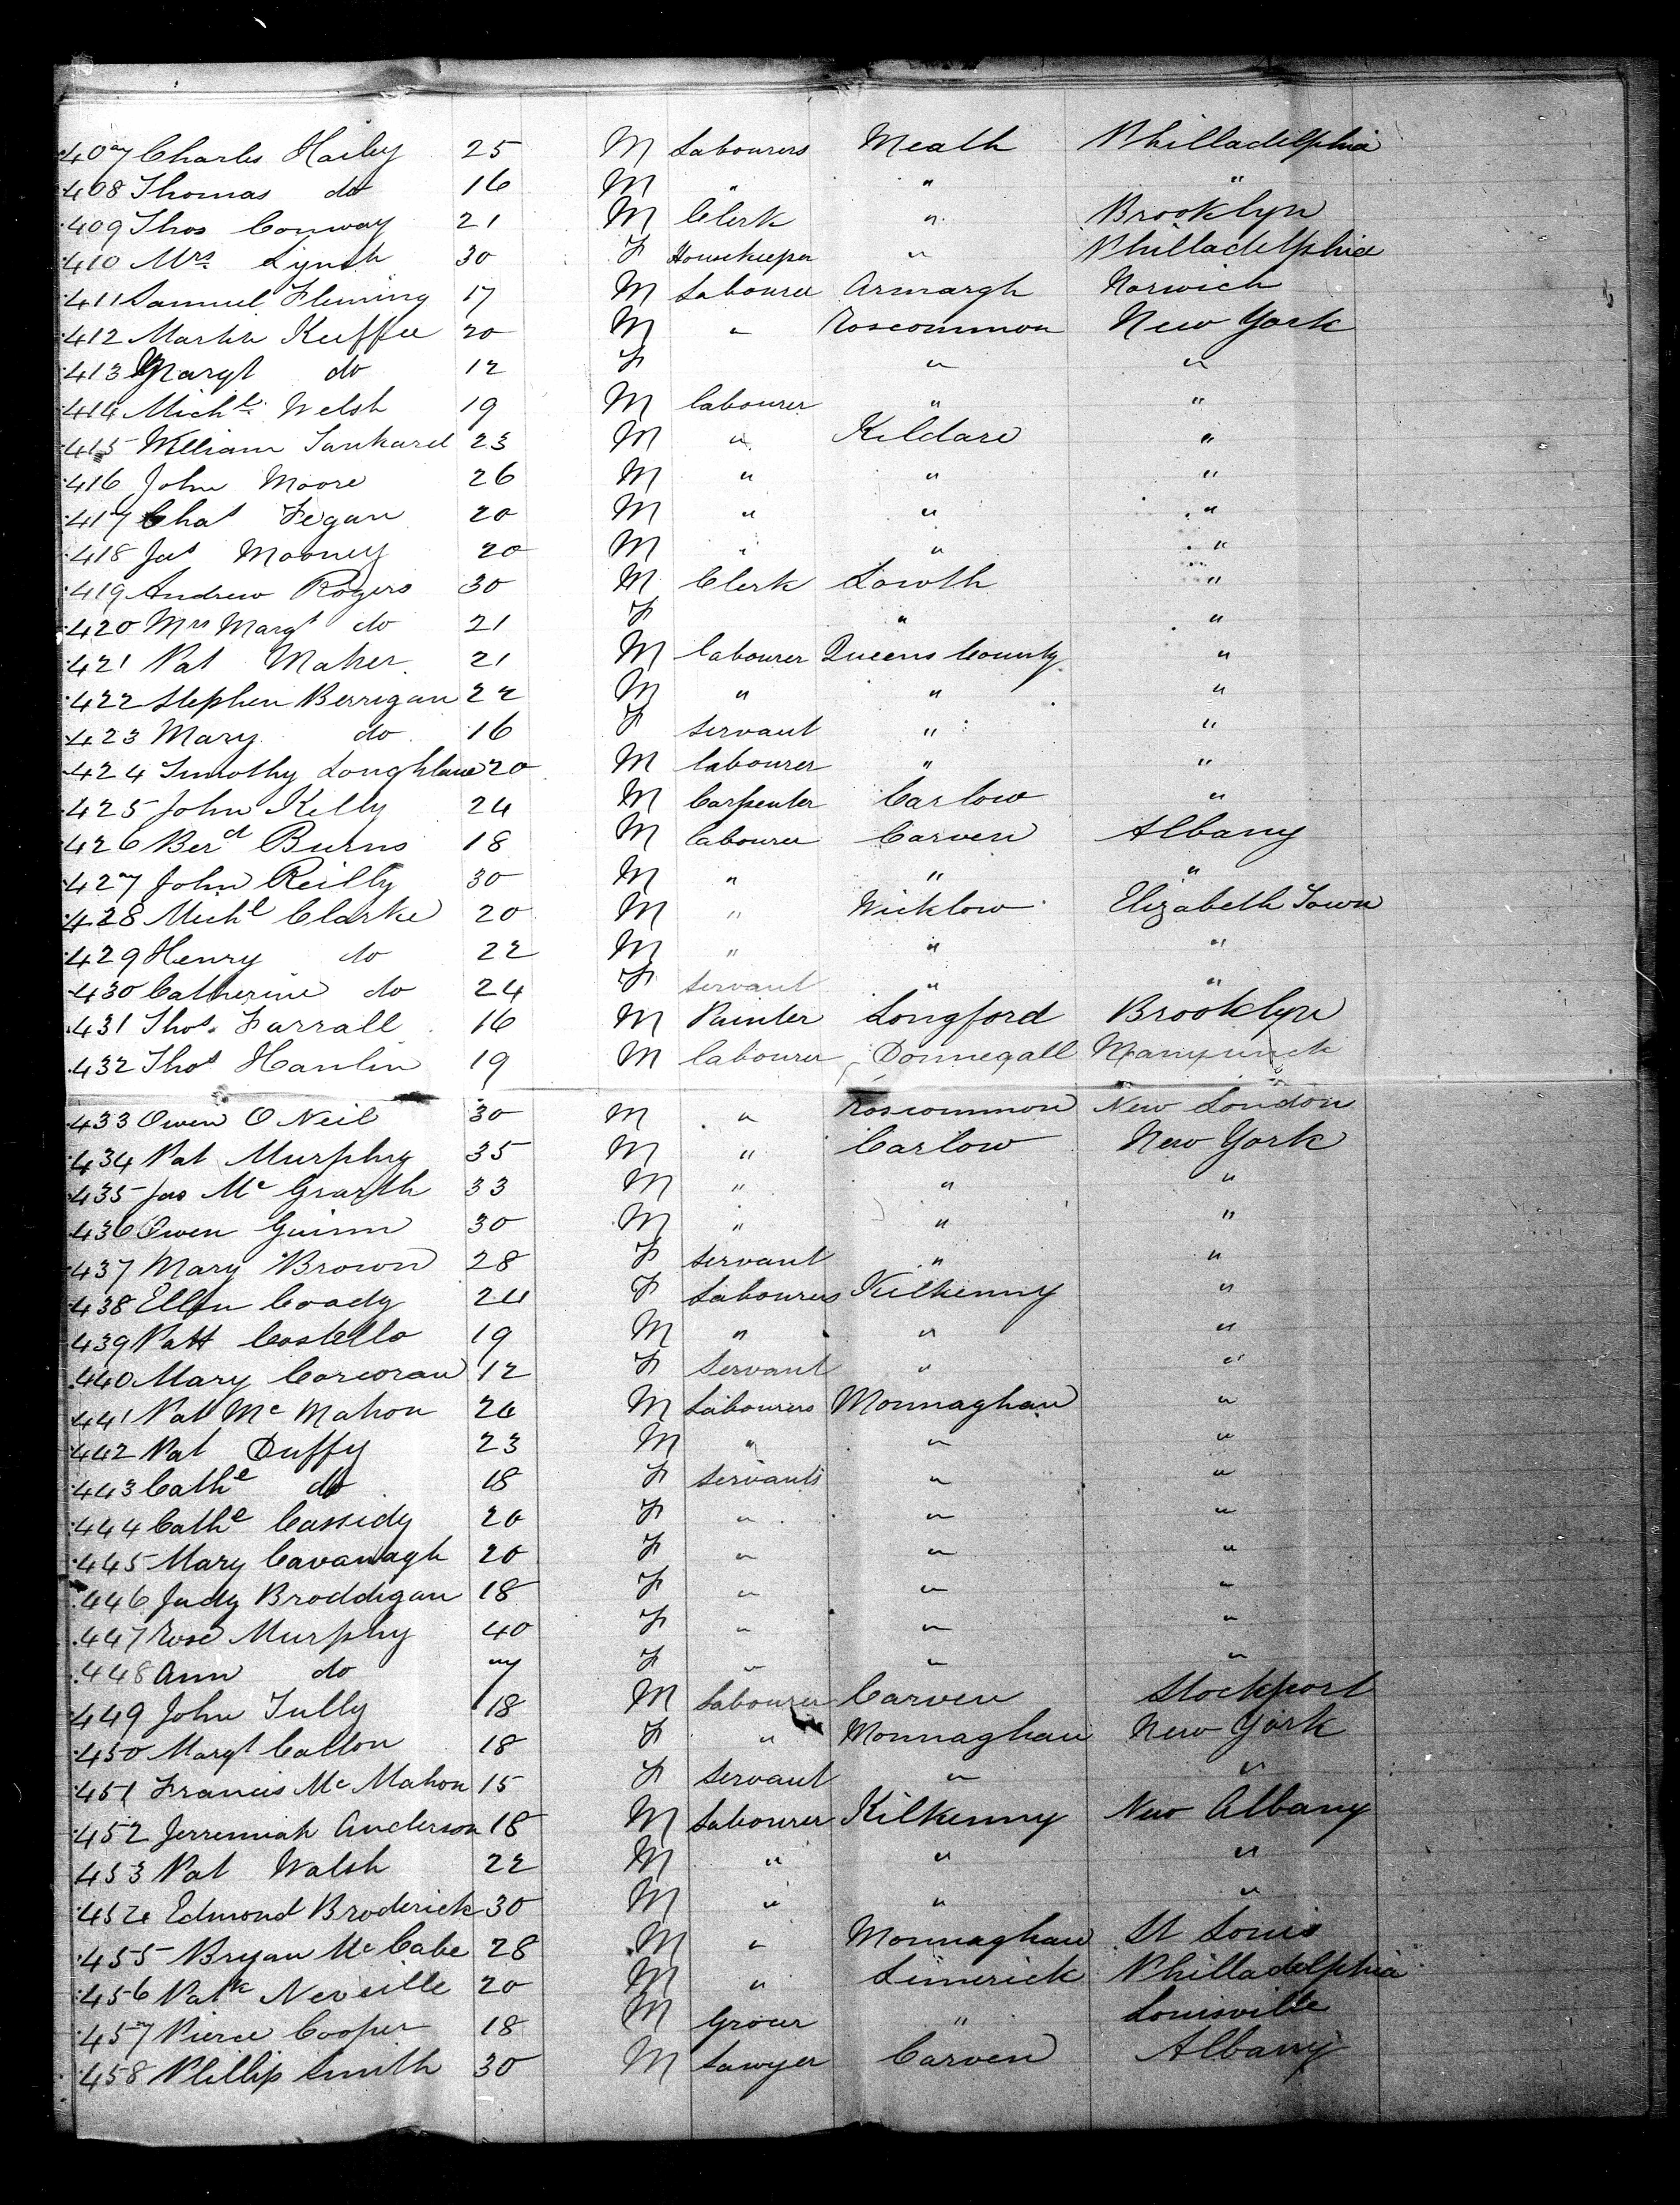 407 Charles Haily 25 M Labourers Meath Philladelphia
408 Thomas do 16 M " " "
409 Thos Conway 21 M Clerk " Brooklyn
410 Mrs Lynch 30 F Housekeeper " Philladelphia
411 Samuel Fleming 17 M Labourer Armargh Norwich
412 Martin Keeffee 20 M " Roscommon New York
413 Margt do 12 F " "
414 Michl Welsh 19 M labourer " "
415 William Tankard 23 M " Kildare "
416 John Moore 26 M " " "
417 Chas Fegan 20 M " " "
418 Jas Mooney 20 M " " "
419 Andrew Rogers 30 M Clerk Lowth "
420 Mrs Margt do 21 F " "
421 Pat Maher 21 M labourer Queens County "
422 Stephen Berrigan 22 M " " "
423 Mary do 16 F servant " "
424 Timothy Loughlane 20 M labourer " "
425 John Kelly 24 M Carpenter Carlow "
426 Berd Burns 18 M labourer Carven Albany
427 John Reilly 30 M " " "
428 Michl Clarke 20 M " Wicklow Elizabeth Town
429 Henry do 22 M " " "
430 Catherine do 24 F servant " "
431 Thos. Farrall 16 M Painter Longford Brooklyn
432 Thos Hanlin 19 M labourer Donnegall Manyunck
433 Owen O Neil 30 M " Roscommon New London
434 Pat Murphy 35 M " Carlow New York
435 Jas Mc Grarth 33 M " " "
436 Owen Guinn 30 M " " "
437 Mary Brown 28 F servant " "
438 Ellen Coady 24 F Labourers Kilkenny "
439 Patt Costello 19 M " " "
440 Mary Corcoran 12 F Servant " "
441 Pat Mc Mahon 26 M Labourers Monnaghan "
442 Pat Duffy 23 M " " "
443 Cathe do 18 F Servants " "
444 Cathe Cassidy 20 F " " "
445 Mary Cavanagh 20 F " " "
446 Judy Broddigan 18 F " " "
447 Rose Murphy 40 F " " "
448 Ann do 7 F " " "
449 John Tully 18 M Labourer Carven Stockport
450 Margt Callon 18 F " Monnaghan New York
451 Francis Mc Mahon 15 F Servant " "
452 Jerremiah Anderson 18 M Labourer Kilkenny New Albany
453 Pat Walsh 22 M " " "
454 Edmond Broderick 30 M " " "
455 Bryan Mc Cabe 28 M " Monnaghan St Louis
456 Patk Neveille 20 M " Limerick Philladelphia
457 Pierce Cooper 18 M Grocer " Louisville
458 Phillip Smith 30 M Sawyer Carven Albany